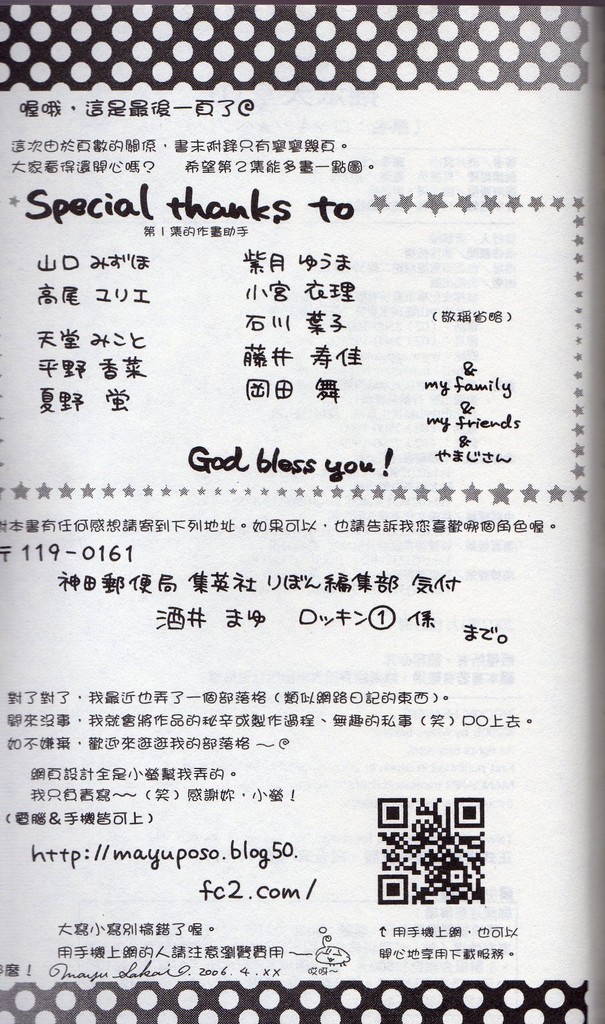 喔哦，這是最後一頁了@
這次由於頁數的關係，書末附錄只有寥寥幾頁。
大家看得還開心嗎？ 希望第2集能多畫一點圖。
Special thanks to
第1集的作畫助手
山口 みずほ 紫月 ゆうま
高尾 ユリエ 小宮 衣理
石川 葉子 (敬稱省略)
天堂 みこと 藤井 寿佳
平野 香菜 岡田 舞
夏野 蛍
&
my family
&
my friends
&
やまじさん
God bless you!
對本書有任何感想請寄到下列地址。如果可以，也請告訴我您喜歡哪個角色喔。
〒119-0161
神田郵便局 集英社 りぼん編集部 気付
酒井 まゆ ロッキン① 係
まで。
對了對了，我最近也弄了一個部落格（類似網路日記的東西）。
閒來沒事，我就會將作品的秘辛或製作過程、無趣的私事（笑）PO上去。
如不嫌棄，歡迎來逛逛我的部落格～@
網頁設計全是小螢幫我弄的。
我只負責寫～～（笑）感謝妳，小螢！
（電腦&手機皆可上）
http://mayuposo.blog50.
fc2.com/
大寫小寫別搞錯了喔。
用手機上網的人請注意瀏覽費用～
↑用手機上網，也可以
開心地享用下載服務。
哎呀～
麼！ Mayu Sakai. 2006.4.xx